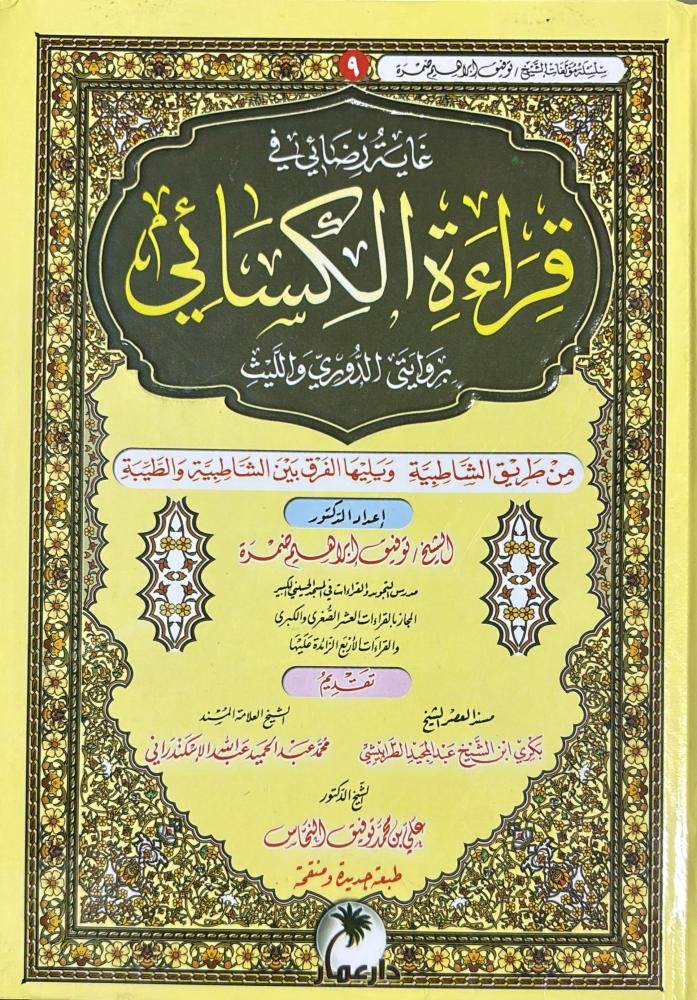 سلسلة مؤلفات الشيخ / توفيق إبراهيم ضمرة ٩
غاية رضائي في
قِرَاءَةِ الكِسَائِي
بروايتي الدُّوري واللَّيث
من طريق الشاطبية ويليها الفرق بين الشاطبية والطيبة
إعداد الدكتور
الشيخ / توفيق إبراهيم ضمرة
مدرس التجويد والقراءات في المسجد الحسيني الكبير
المجاز بالقراءات العشر الصُّغرى والكبرى
والقراءات الأربع الزائدة عليها
تقديمُ
مسند العصر الشيخ
بكري ابن الشَّيخ عبد المجيد الطرابيشي
الشيخ العلامة المسند
محمد عبد الحميد عبد الله الإسكندراني
الشيخ الدكتور
علي بن محمد توفيق النحاس
طبعة جديدة ومنقحة
دار عمار